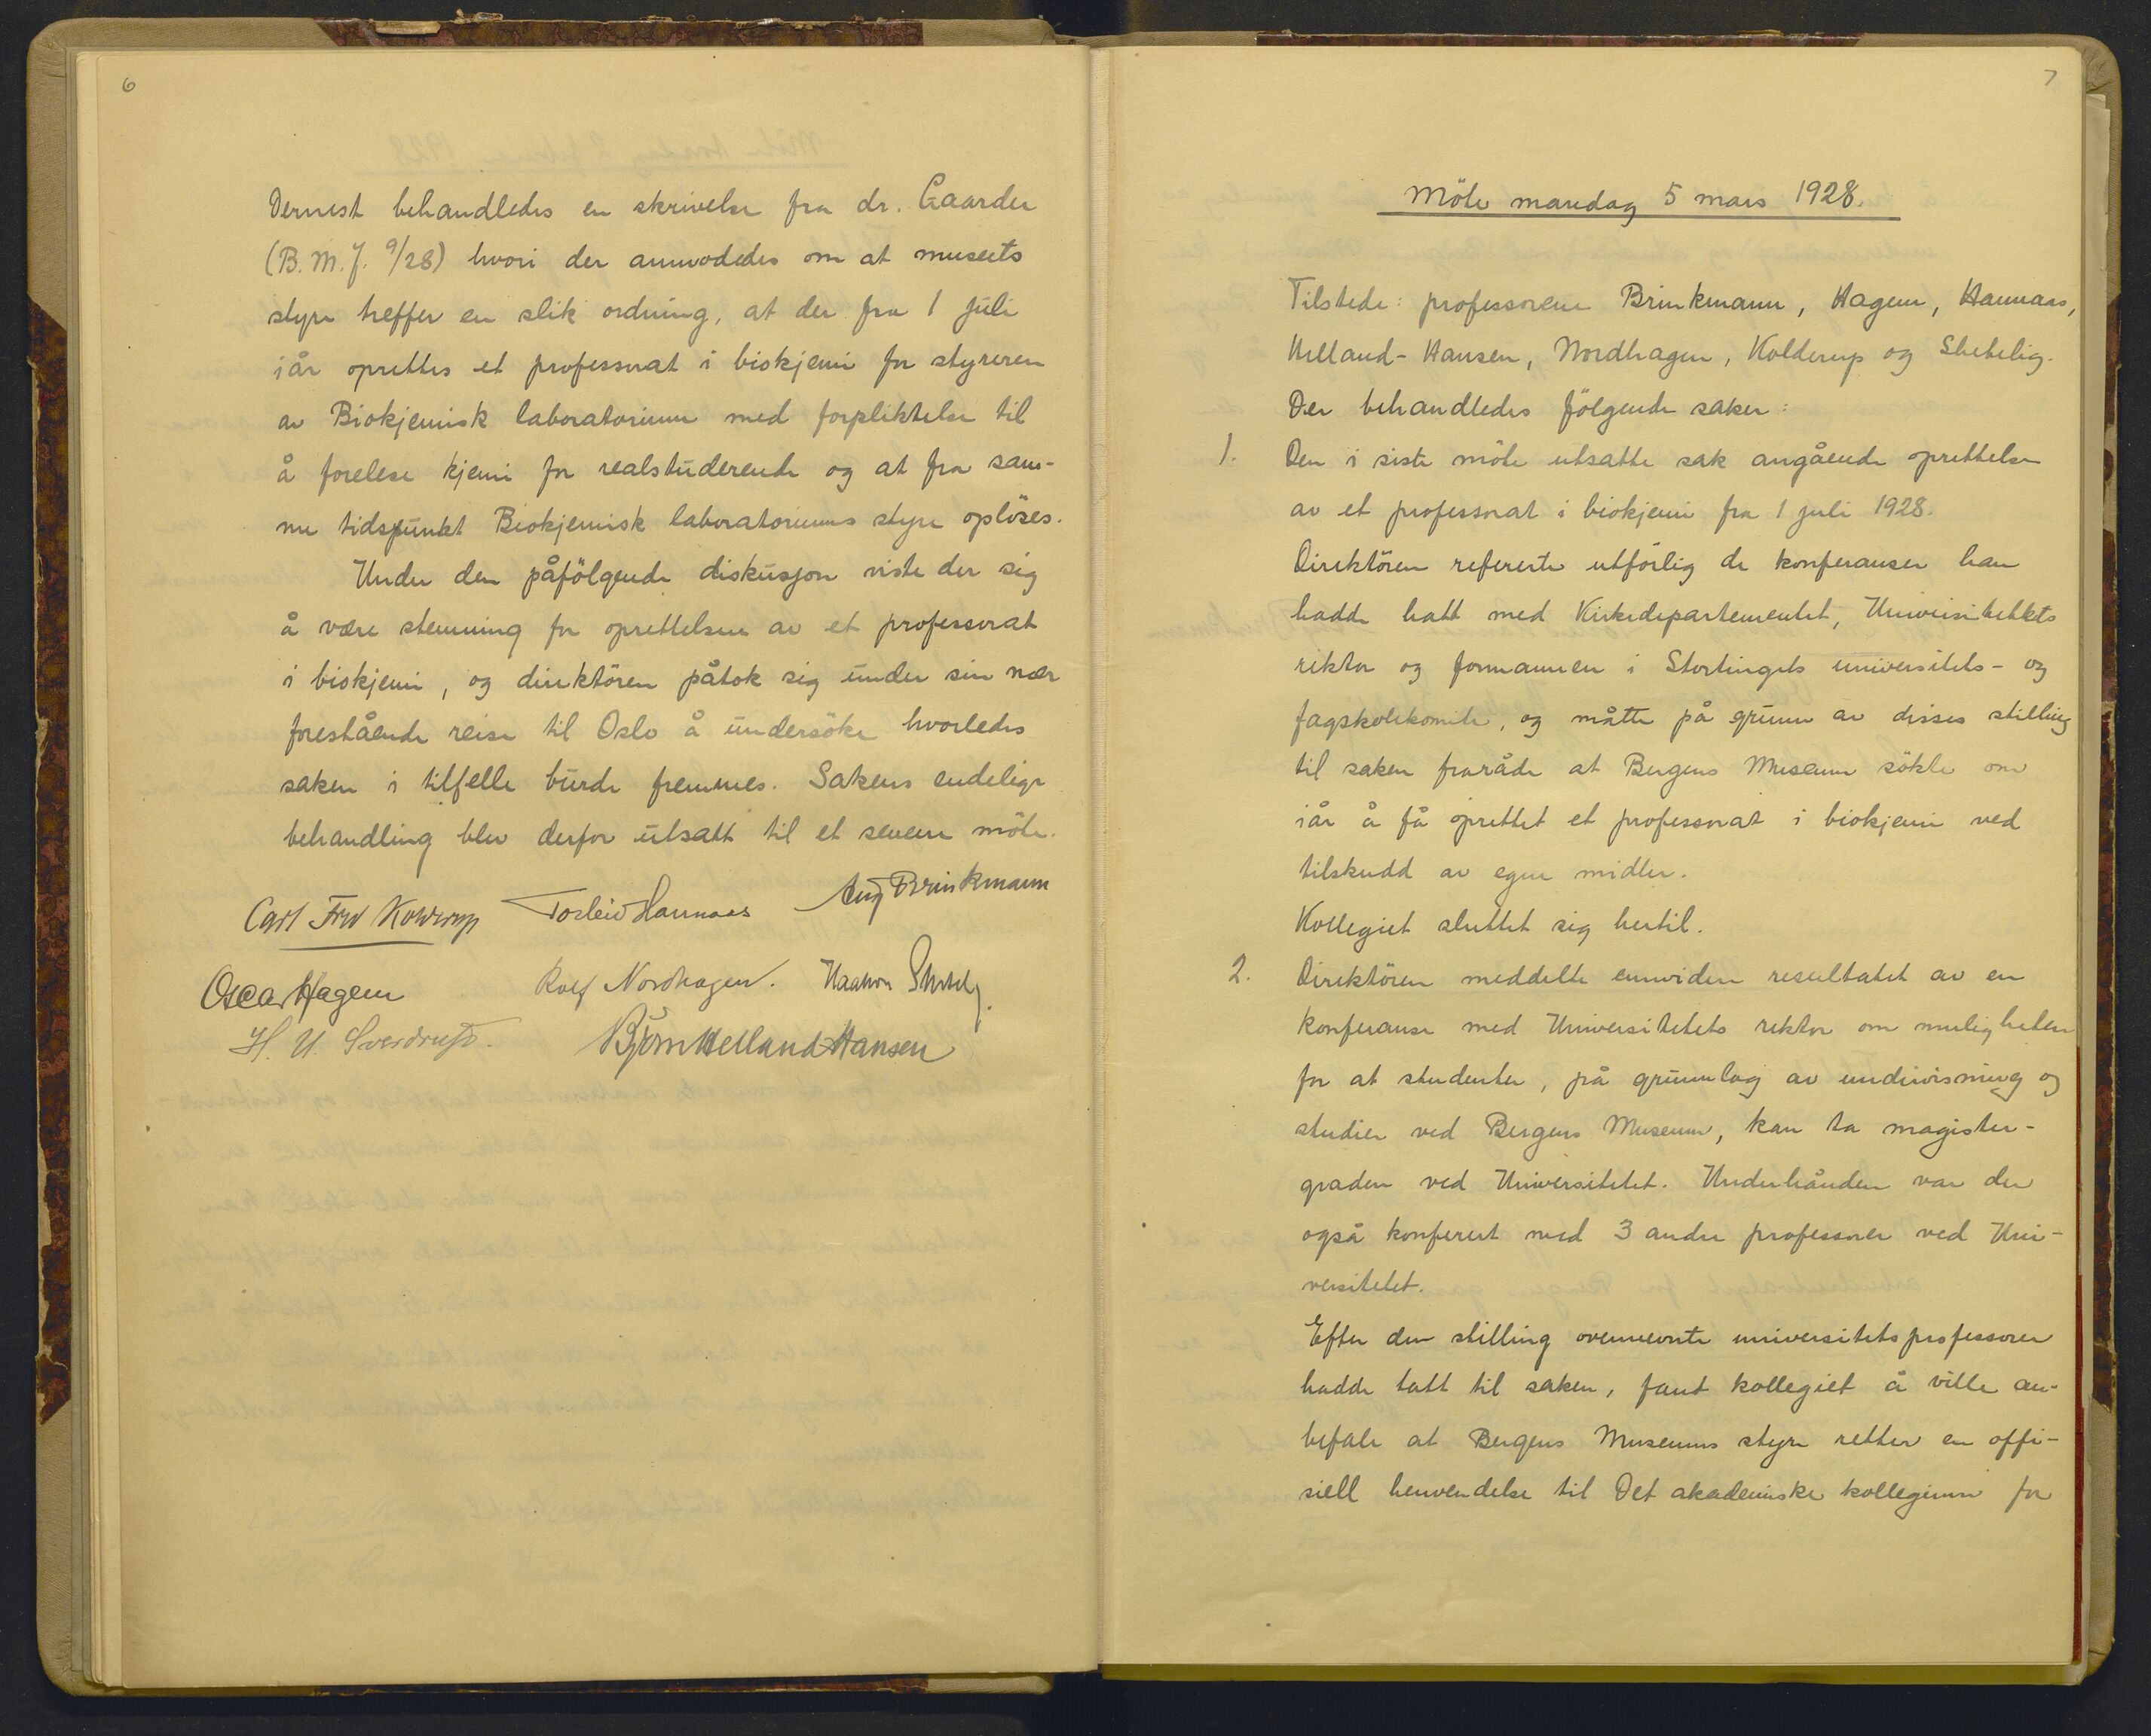 6
Dernest behandledes en skrivelse fra dr. Gaarder
(B.M.J. 9/28) hvori der anmodedes om at museets
styre treffer en slik ordning, at der fra 1 juli
iår oprettes et professorat i biokjemi for styreren
av Biokjemisk laboratorium med forpliktelse til
å forelese kjemi for realstuderende og at fra sam-
me tidspunkt Biokjemisk laboratoriums styre oplöses.
Under den påfölgende diskusjon viste der sig
å være stemning for oprettelsen av et professorat
i biokjemi, og direktören påtok sig under sin nær
forestående reise til Oslo å undersöke hvorledes
saken i tilfelle burde fremmes. Sakens endelige
behandling blev derfor utsatt til et senere möte.
Carl Fred Kolderup Torleiv Hannaas Aug Brinkmann
Oscar Hagem Rolf Nordhagen. Haakon Shetelig.
H. U. Sverdrup. Björn Helland-Hansen
7
Möte mandag 5 mars 1928.
Tilstede: professorene Brinkmann, Hagem, Hannaas,
Helland-Hansen, Nordhagen, Kolderup og Shetelig.
Der behandledes fölgende saker:
1. Den i siste möte utsatte sak angående oprettelse
av et professorat i biokjemi fra 1 juli 1928.
Direktören refererte utförlig de konferanser han
hadde hatt med Kirkedepartementet, Universitetets
rektor og formannen i Stortingets universitets- og
fagskolekomite, og måtte på grunn av disses stilling
til saken fraråde at Bergens Museum sökte om
iår å få oprettet et professorat i biokjemi ved
tilskudd av egne midler.
Kollegiet sluttet sig hertil.
2. Direktören meddelte envidere resultatet av en
konferanse med Universitetets rektor om muligheten
for at studenter, på grunnlag av undervisning og
studier ved Bergens Museum, kan ta magister-
graden ved Universitetet. Underhånden var der
også konferert med 3 andre professorer ved Uni-
versitetet.
Efter den stilling ovennevnte universitetsprofessorer
hadde tatt til saken, fant kollegiet å ville an-
befale at Bergens Museums styre retter en offi-
siell henvendelse til Det akademiske kollegium for